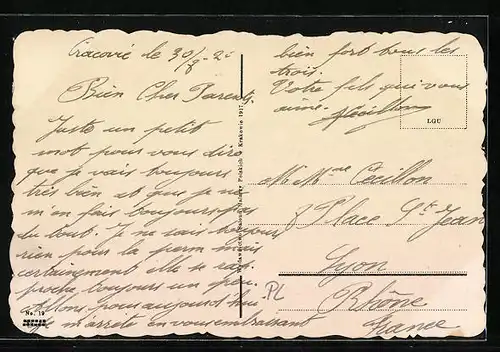 Cracovie le 30/8 - 2
Bien Cher Parents.
Juste un petit
mot pour vous dire
que je vais toujours
très bien et que je ne
m'en fais toujours pas
du tout. Je ne sais toujours
rien pour la perm mais
certainement elle se rap
proche toujours un peu.
Allons pour aujourd'hui
je m'arrête en vous embrassant
bien fort tous les
trois.
Votre fils qui vous
aime. Cecillon
LGU
Polskich w Krakowie 1917
M. Mme Cecillon
8 Place St Jean
Lyon
PL
Rhône
France
No. 19